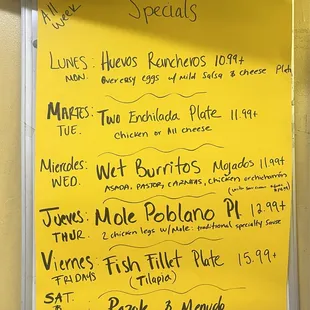 All
week
Specials
LUNES: Huevos Rancheros 10.99+
MON. Over easy eggs w/ Mild Salsa & cheese Plate
MARTES: Two Enchilada Plate 11.99+
TUE. Chicken or All cheese
Miercoles: Wet Burritos Mojados 11.99+
WED. ASADA, PASTOR, CARNITAS, chicken or chicharron
Jueves: Mole Poblano Pl 12.99+
THUR. 2 chicken legs w/Mole: traditional specialty Sause
Viernes: Fish Fillet Plate 15.99+
FRIDAYS (Tilapia)
SAT.
Pozole & Menudo